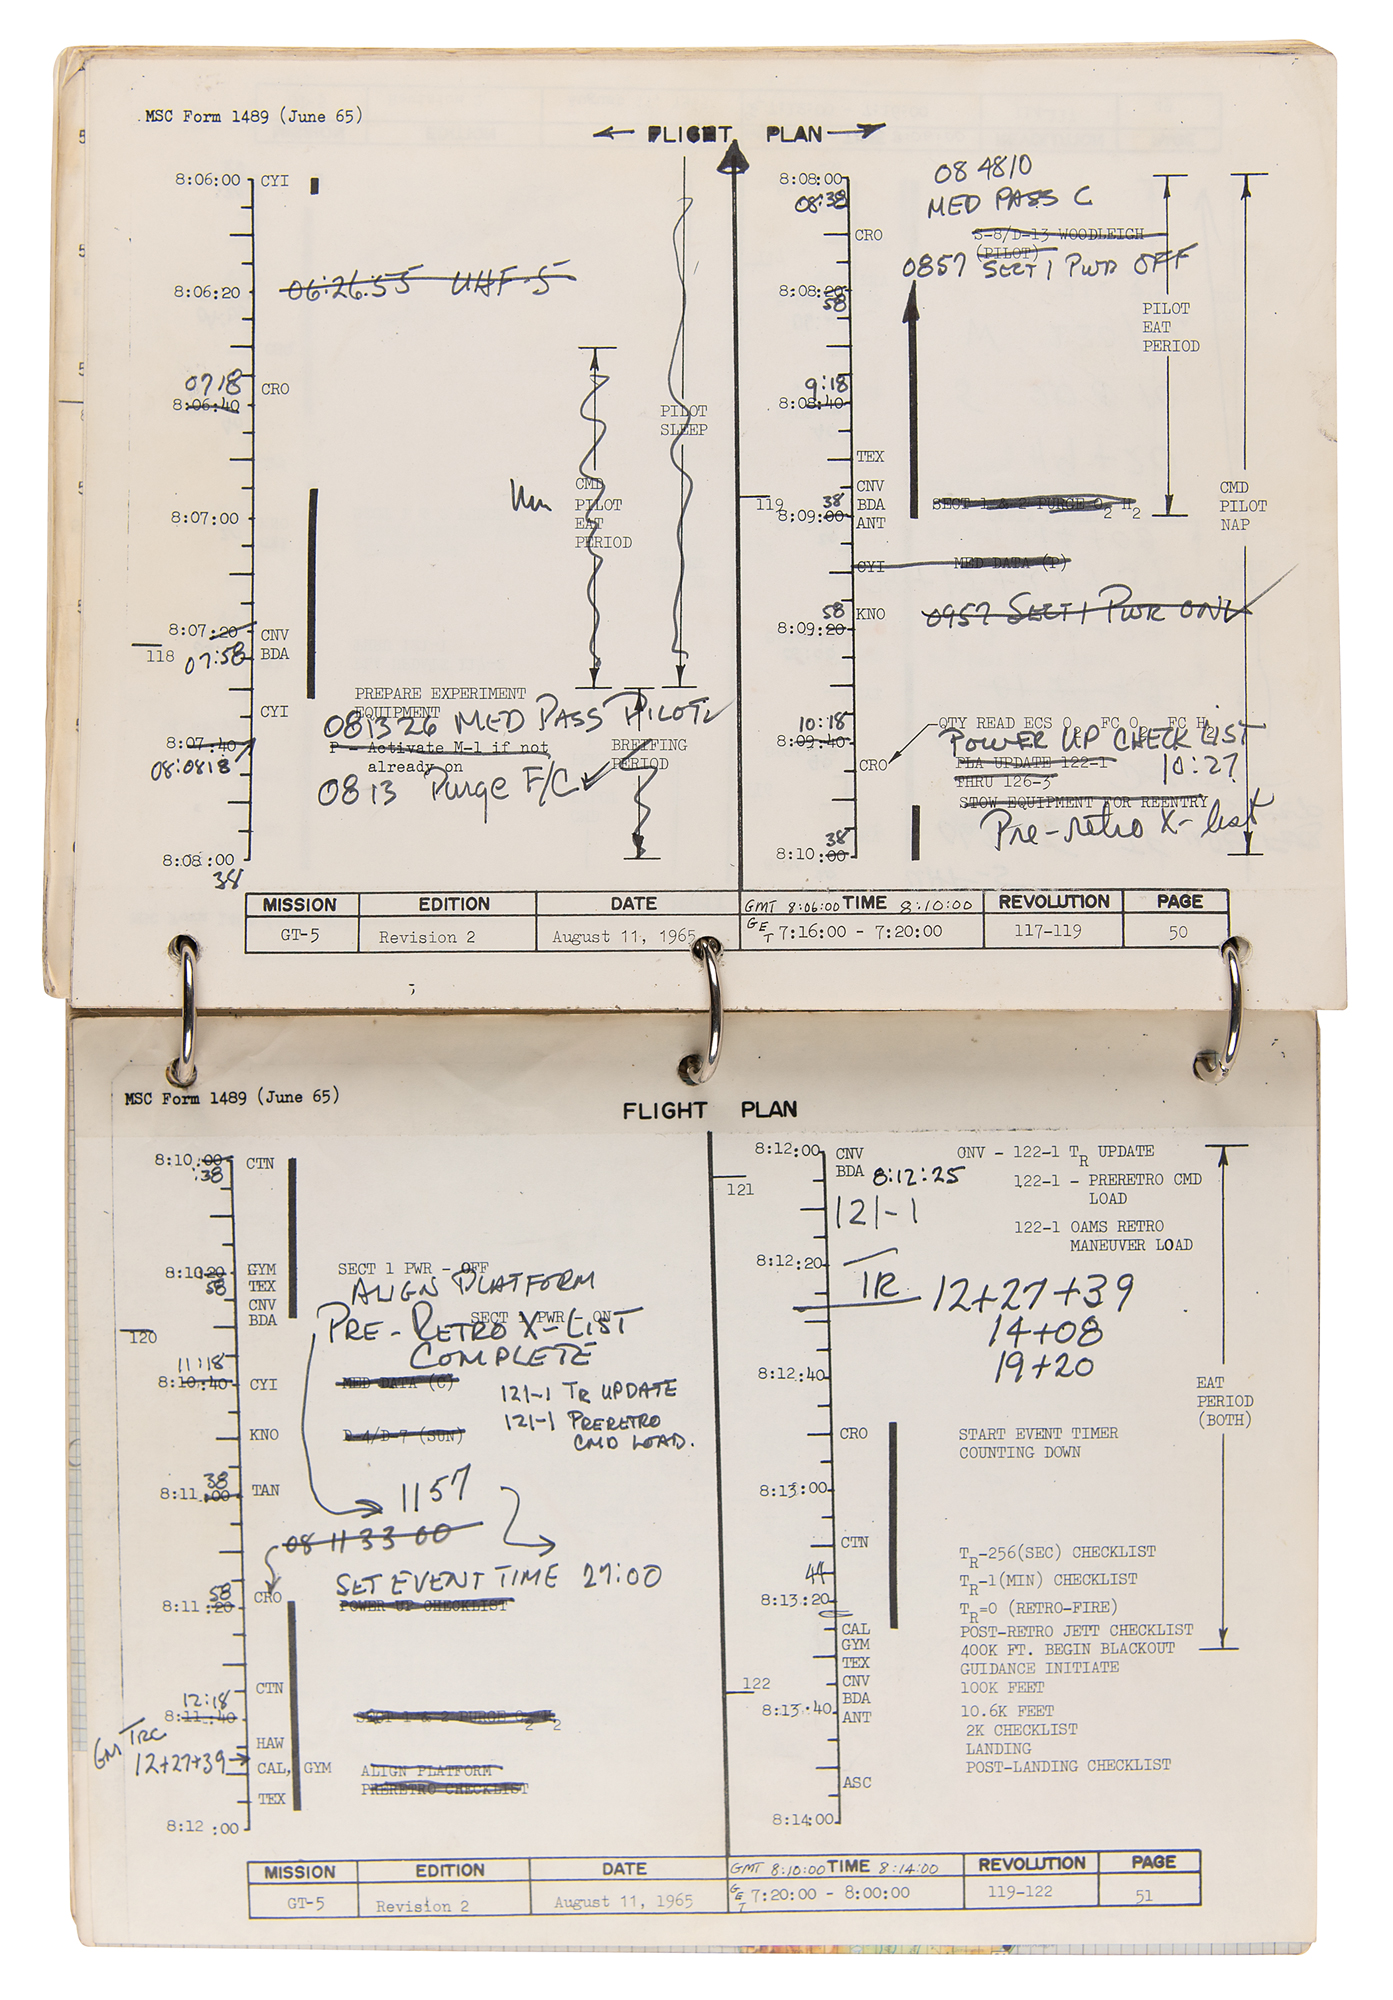 MSC Form 1489 (June 65)
← FLIGHT PLAN →
8:06:00 CYI
06:26:55 UHF-5
8:06:20
0718
CRO
8:06:40
PILOT
SLEEP
CMD
PILOT
EAT
PERIOD
8:07:00
8:07:20 CNV
118 07:58 BDA
PREPARE EXPERIMENT
EQUIPMENT
CYI
081326 MED PASS PILOT
8:07:40
P - Activate M-1 if not
already on
BRIEFING
PERIOD
08:0818
0813 Purge F/C
8:08:00
38
8:08:00
08:38
084810
MED PASS C
CRO
S-8/D-13 WOODLEIGH
(PILOT)
0857 SECT 1 PWR OFF
8:08:20
58
PILOT
EAT
PERIOD
9:18
8:08:40
TEX
CNV
119 38 BDA
SECT 1 & 2 PURGE O2 H2
8:09:00 ANT
CMD
PILOT
NAP
CYI MED DATA (P)
58 KNO
0957 SECT 1 PWR ON
8:09:20
10:18
QTY READ ECS O2 FC O2 FC H2
8:09:40
POWER UP CHECK LIST
CRO
PLA UPDATE 122-1
THRU 126-3
10:27
STOW EQUIPMENT FOR REENTRY
Pre-retro X-list
38
8:10:00
MISSION EDITION DATE GMT 8:06:00 TIME 8:10:00 REVOLUTION PAGE
GT-5 Revision 2 August 11, 1965 GET 7:16:00 - 7:20:00 117-119 50
MSC Form 1489 (June 65)
FLIGHT PLAN
8:10:00 CTN
:38
8:10:20 GYM SECT 1 PWR - OFF
58 TEX
ALIGN PLATFORM
CNV
BDA SECT 1 PWR - ON
120
PRE-RETRO X-LIST
COMPLETE
11:18
8:10:40 CYI MED DATA (C)
121-1 TR UPDATE
121-1 PRERETRO
CMD LOAD.
KNO D-4/D-7 (SUN)
38
8:11:00 TAN
1157
08 11 33 00
SET EVENT TIME 27:00
58 CRO
8:11:20 POWER UP CHECKLIST
CTN
12:18
8:11:40 SECT 1 & 2 PURGE O2 H2
GMTRC
HAW
12+27+39→ CAL, GYM ALIGN PLATFORM
PRERETRO CHECKLIST
TEX
8:12:00
8:12:00 CNV CNV - 122-1 TR UPDATE
BDA 8:12:25
122-1 - PRERETRO CMD
LOAD
121
121-1
122-1 OAMS RETRO
MANEUVER LOAD
8:12:20
TR 12+27+39
14+08
19+20
8:12:40
EAT
PERIOD
(BOTH)
CRO START EVENT TIMER
COUNTING DOWN
8:13:00
CTN
TR-256(SEC) CHECKLIST
44
TR-1(MIN) CHECKLIST
8:13:20
TR=0 (RETRO-FIRE)
CAL POST-RETRO JETT CHECKLIST
GYM 400K FT. BEGIN BLACKOUT
TEX GUIDANCE INITIATE
122 CNV 100K FEET
BDA
8:13:40 ANT 10.6K FEET
2K CHECKLIST
LANDING
POST-LANDING CHECKLIST
ASC
8:14:00
MISSION EDITION DATE GMT 8:10:00 TIME 8:14:00 REVOLUTION PAGE
GT-5 Revision 2 August 11, 1965 GET 7:20:00 - 8:00:00 119-122 51